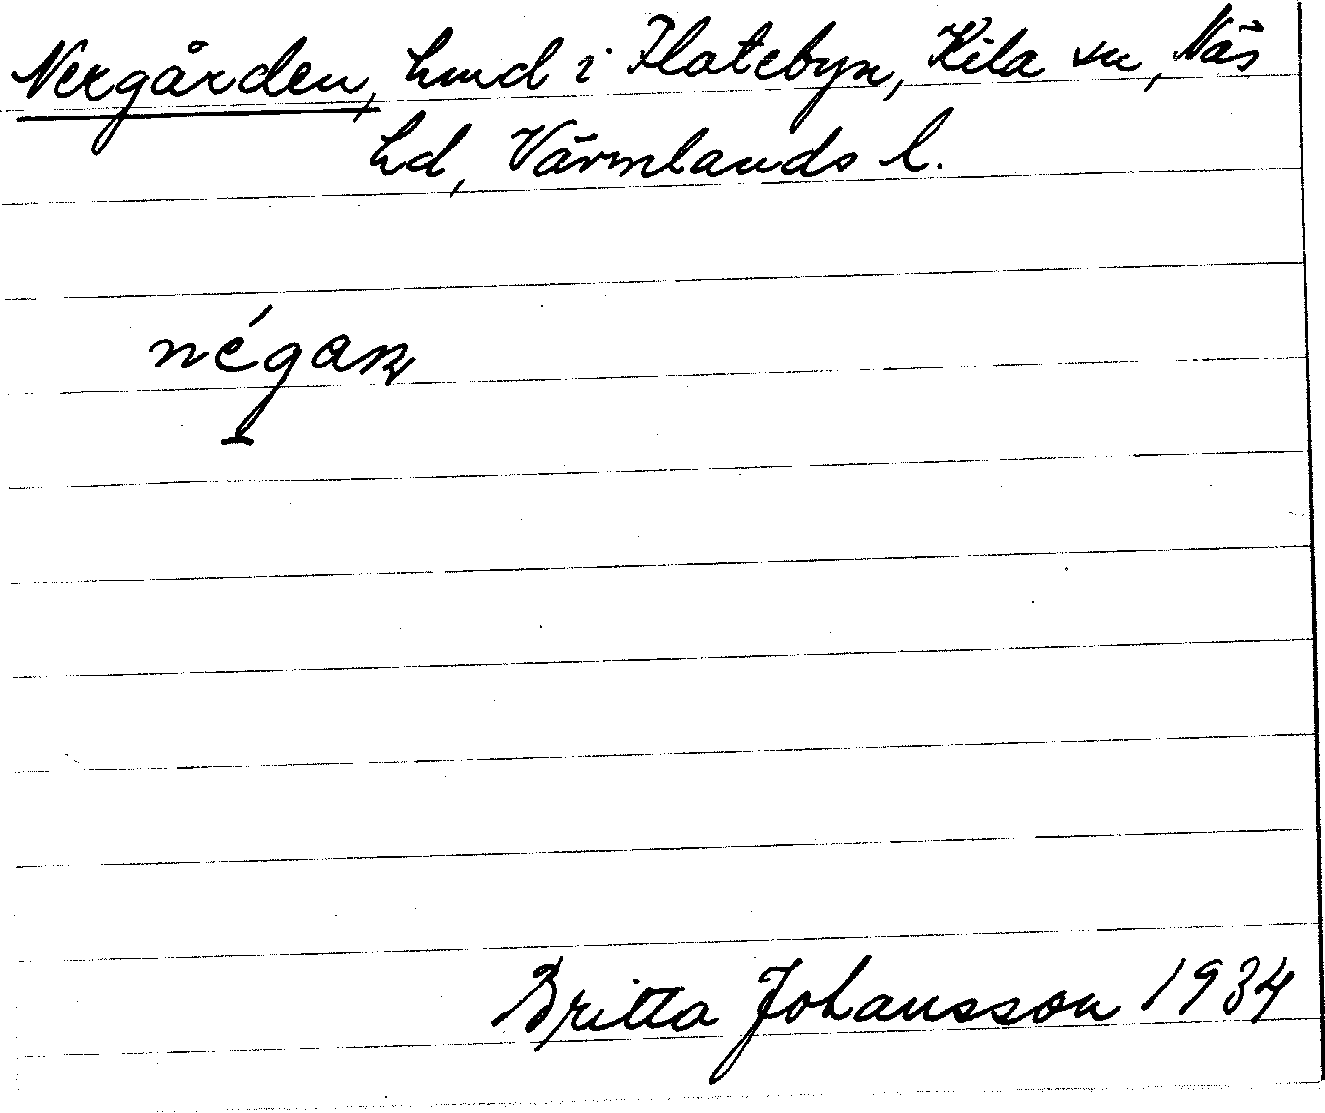 Nergården, hmd i Flatebyn, Kila sn, Näs
hd, Värmlands l.
négaɳ
Britta Johansson 1934